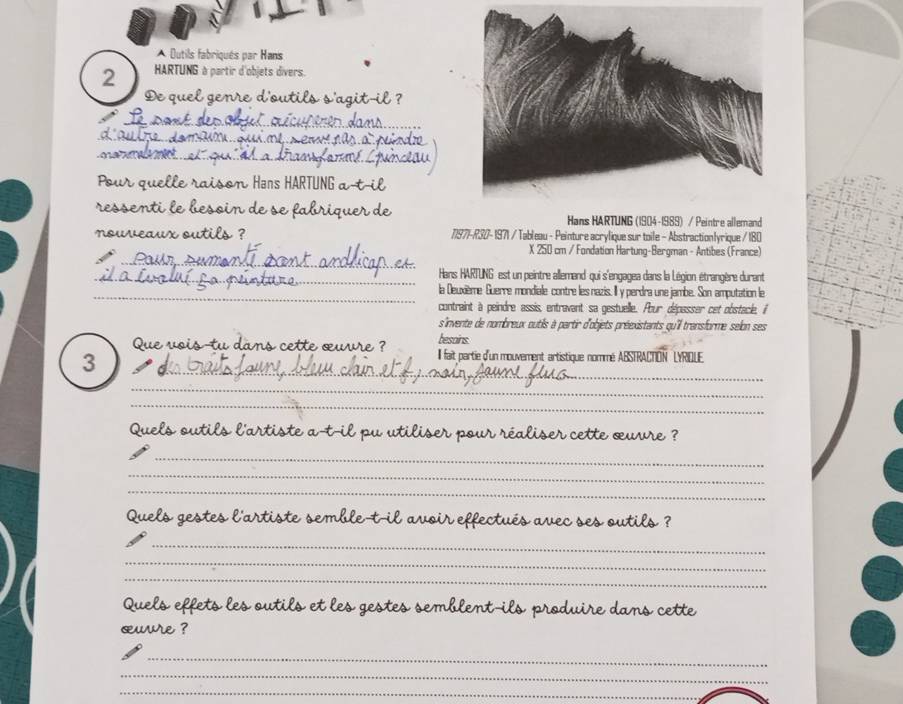 ▲ Outils fabriqués par Hans
HARTUNG à partir d'objets divers.
2
De quel genre d'outils s'agit-il ?
Se sont des objet récupérer dans
d'autre domaine qui ne serve pas a peindre
normalement et qu'il a transformé (pinceau)
Pour quelle raison Hans HARTUNG a-t-il
ressenti le besoin de se fabriquer de
nouveaux outils ?
Pour surmonté sont andicap et
il a évolué sa peinture
Hans HARTUNG (1904-1989) / Peintre allemand
T1971-R30- 1971 / Tableau - Peinture acrylique sur toile - Abstractionlyrique / 180
X 250 cm / Fondation Hartung-Bergman - Antibes (France)
Hans HARTUNG est un peintre allemand qui s'engagea dans la Légion étrangère durant
la Deuxième Guerre mondiale contre les nazis. Il y perdra une jambe. Son amputation le
contraint à peindre assis, entravant sa gestuelle. Pour dépasser cet obstacle, il
s'invente de nombreux outils à partir d'objets préexistants qu'il transforme selon ses
besoins.
Il fait partie d'un mouvement artistique nommé ABSTRACTION LYRIQUE.
3
Que vois-tu dans cette œuvre ?
des traits jaune, bleu clair et f, noir, jaune fluo
Quels outils l'artiste a-t-il pu utiliser pour réaliser cette œuvre ?
Quels gestes l'artiste semble-t-il avoir effectués avec ses outils ?
Quels effets les outils et les gestes semblent-ils produire dans cette
œuvre ?